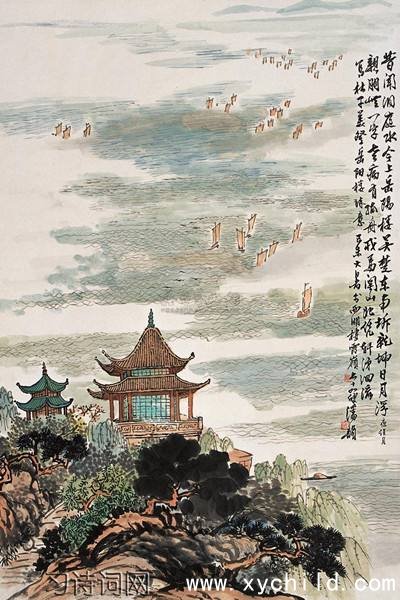 昔聞洞庭水今上岳陽樓吳楚東南坼乾坤日月浮
親朋無一字老病有孤舟戎馬關山北憑軒涕泗流
寫杜子美登岳陽樓詩意 大暑 西湖棲霞嶺 潘韻
诗词网
www.xychild.com